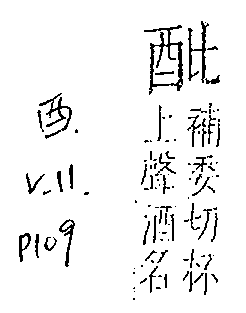 補委切杯
上聲酒名
酉.
V.11.
P109